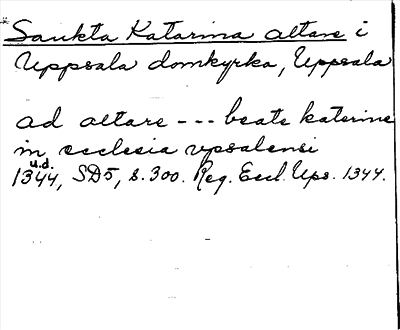 Sankta Katarina altare i
Uppsala domkyrka, Uppsala
ad altare --- beate katerine
in ecclesia vpsalensi
u.d.
1344, SD5, s. 300. Reg. Eccl. Ups. 1344.